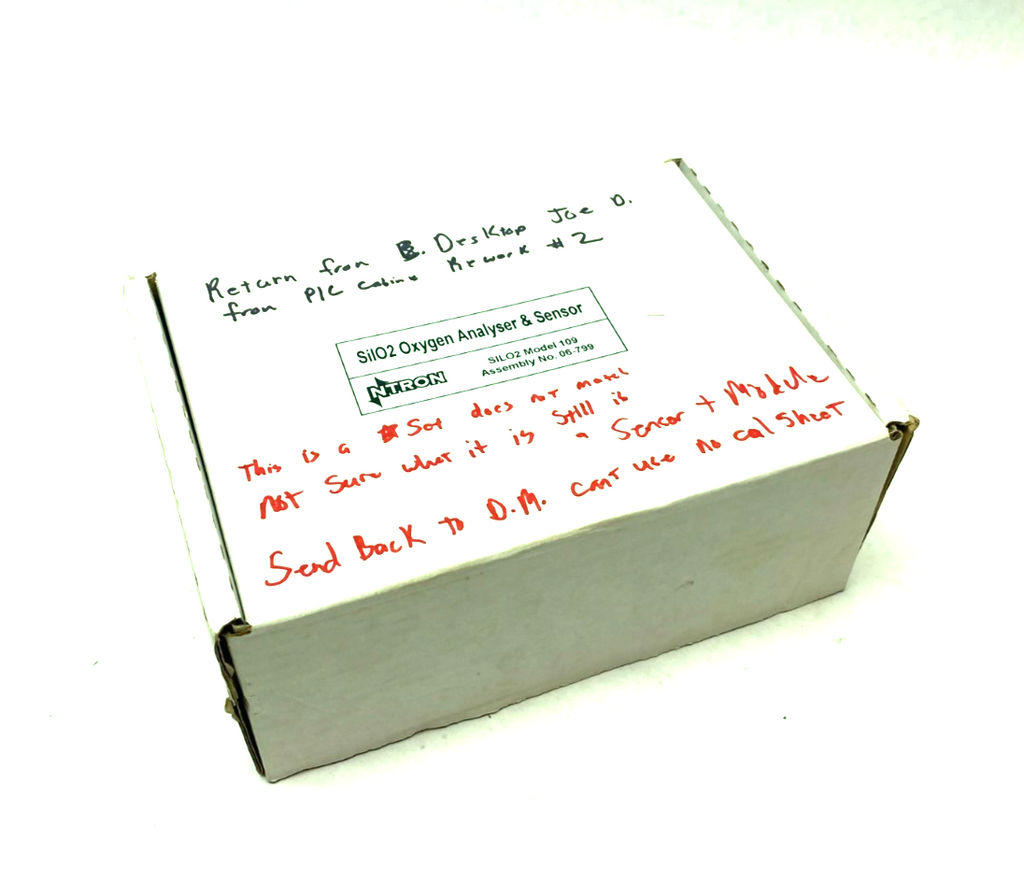 Return from B. Desktop Joe D.
from P/C cabine Rework #2
SilO2 Oxygen Analyser & Sensor
NTRON
SILO2 Model 109
Assembly No. 06-799
This is a Set does not match
NOT Sure what it is Still is
a Sensor + Module
Send Back to D.M. cant use no cal sheet